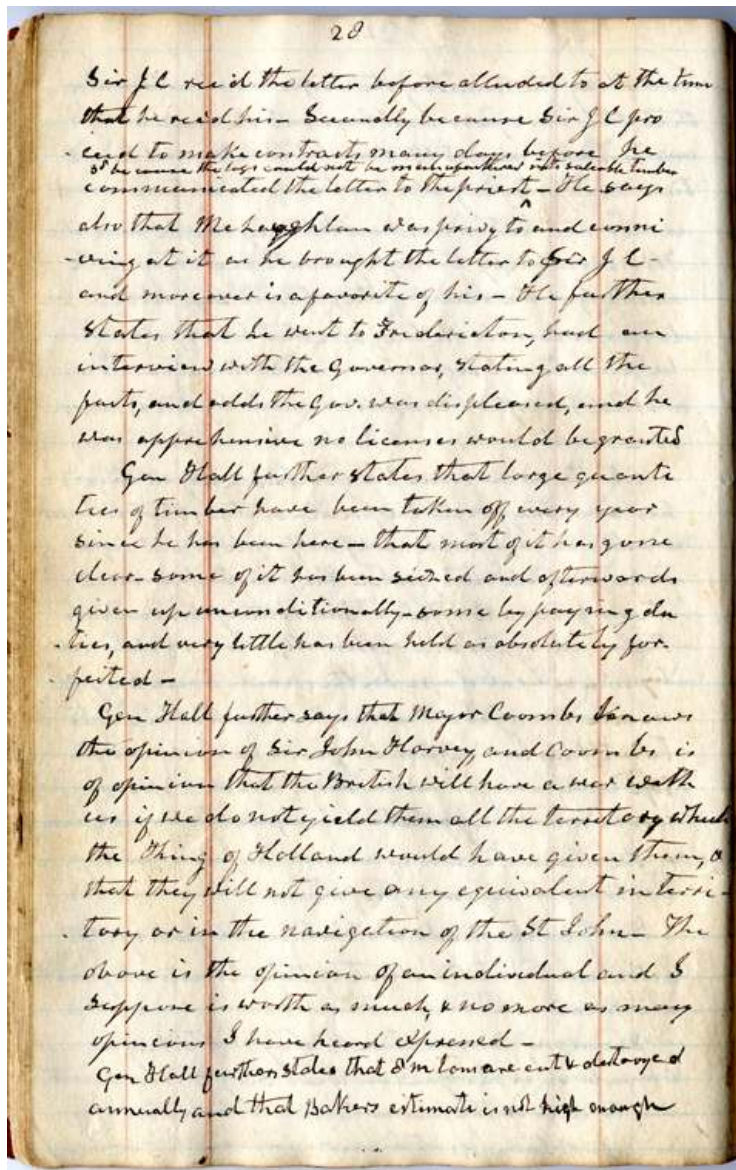 28
Sir J C rec'd the letter before alluded to at the time
that he rec'd his - Secondly because Sir J C pro
ceed to make contracts many days before he
3d because the logs could not be manufactured into saleable timber
communicated the letter to the priest - He says
also that McLaughlan was privy to and conni
-ving at it as he brought the letter to Sir J C -
and moreover is a favorite of his - He further
states that he went to Fredericton, had an
interview with the Governor, stating all the
facts, and adds the Gov. was displeased, and he
was apprehensive no licenses would be granted
Gen Hall further states that large quanti
ties of timber have been taken off every year
since he has been here - that most of it has gone
clear - some of it has been seized and afterwards
given up unconditionally - some by paying du
-ties, and very little has been held as absolutely for-
-feited -
Gen Hall further says that Major Coombs knows
the opinion of Sir John Harvey, and Coombs is
of opinion that the British will have a war with
us if we do not yield them all the territory which
the King of Holland would have given them, &
that they will not give any equivalent in terri-
-tory or in the navigation of the St John - The
above is the opinion of an individual and I
suppose is worth as much, & no more as many
opinions I have heard expressed -
Gen Hall further states that 8 m tons are cut & destroyed
annually and that Bakers estimate is not high enough